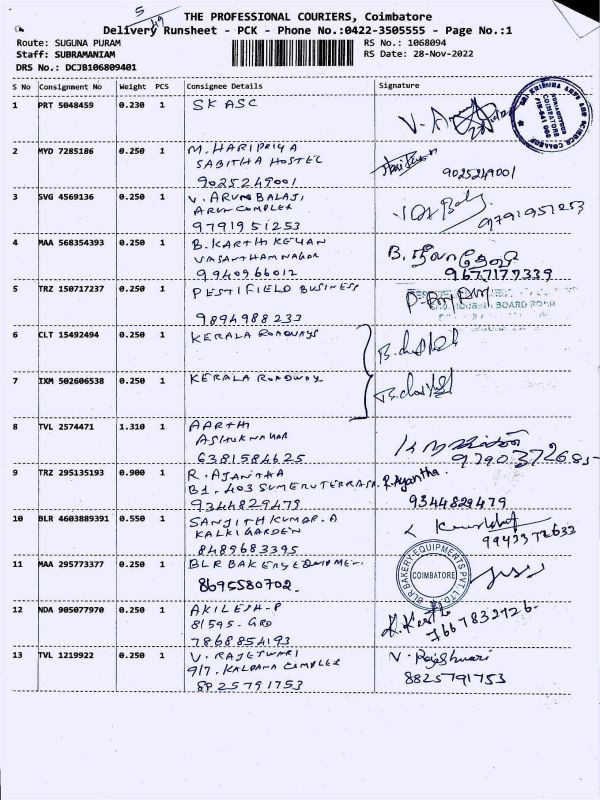 5/49
THE PROFESSIONAL COURIERS, Coimbatore
Delivery Runsheet - PCK - Phone No.:0422-3505555 - Page No.:1
Route: SUGUNA PURAM
Staff: SUBRAMANIAM
DRS No.: DCJB106809401
RS No.: 1068094
RS Date: 28-Nov-2022
S No Consignment No Weight PCS Consignee Details Signature
1 PRT 5048459 0.230 1 SK ASC
SRI KRISHNA ARTS AND SCIENCE COLLEGE
COIMBATORE
2 MYD 7285186 0.250 1 M. HARIPRIYA
SABITHA HOSTEL
9025249001 9025249001
3 SVG 4569136 0.250 1 V. ARUN BALAJI
ARUN COMPLEX
9791951253 9791951253
4 MAA 568354393 0.250 1 B. KARTHIKEYAN
VASANTHAM NAGAR
9940966012 9677177339
5 TRZ 150717237 0.250 1 PESTIFIELD BUSINESS
9894988233
BOARD ROAD
6 CLT 15492494 0.250 1 KERALA ROADWAYS
7 IXM 502606538 0.250 1 KERALA ROADWAY
8 TVL 2574471 1.310 1 AARTHI
ASHOK NAGAR
6381584625
9 TRZ 295135193 0.900 1 R. AJANTHA
B1. 403 SUMERU TERRASA R. Ajantha.
9344829479 9344829479
10 BLR 4603889391 0.550 1 SANJITH KUMAR. A
KALKI GARDEN
8489683395 9943372633
11 MAA 295773377 0.250 1 BLR BAKERY EQUIPME-
8695580702.
BLR BAKERY EQUIPMENTS PVT. LTD.
COIMBATORE
12 NDA 905077970 0.250 1 AKILESH-P
81595- GRO
7868854193 7667832726-
13 TVL 1219922 0.250 1 V. RAJESWARI V. Rajeshwari
9/7. KALPANA COMPLEX
8825791753 8825791753